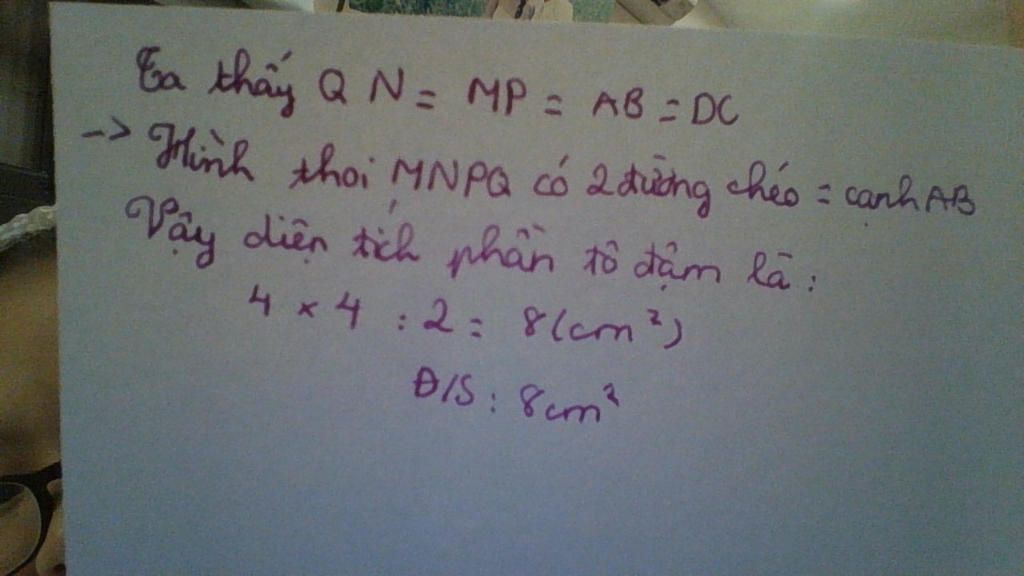 Ta thấy QN = MP = AB = DC
-> Hình thoi MNPQ có 2 đường chéo = cạnh AB
Vậy diện tích phần tô đậm là :
4 x 4 : 2 = 8 (cm²)
Đ/S : 8cm²